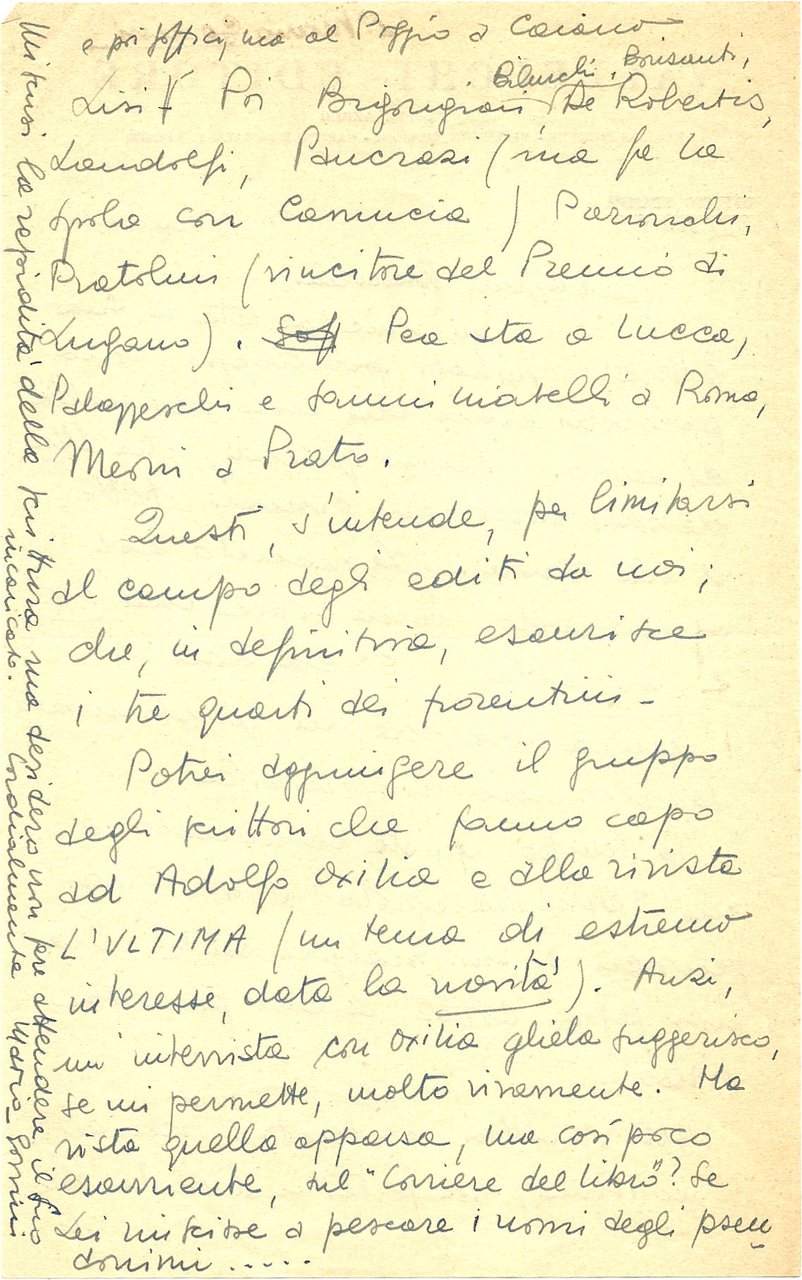 e poi Soffici, ma al Poggio a Caiano
Bilenchi, Bonsanti,
Lisi Poi Brigonzioni De Robertis,
Landolfi, Pancrazi (ma fa la
spola con Camucia) Parronchi,
Pratolini (vincitore del Premio di
Lugano). Soff Pea sta a Lucca,
Palazzeschi e Sanminiatelli a Roma,
Meoni a Prato.
Questi, s'intende, per limitarsi
al campo degli editi da noi;
che, in definitiva, esaurisce
i tre quarti dei fiorentini -
Potrei aggiungere il gruppo
degli scrittori che fanno capo
ad Adolfo Oxilia e alla rivista
L'ULTIMA (un tema di estremo
interesse, data la novità). Anzi,
un'intervista con Oxilia gliela suggerisco,
se mi permette, molto vivamente. Ha
vista quella apparsa, ma così poco
esauriente, sul "Corriere del libro"? Se
Lei riuscisse a pescare i nomi degli pseu
donimi.....
Mi scusi la rapidità della scrittura ma desidero non fare attendere il suo
incaricato. Cordialmente Mario Gozzini